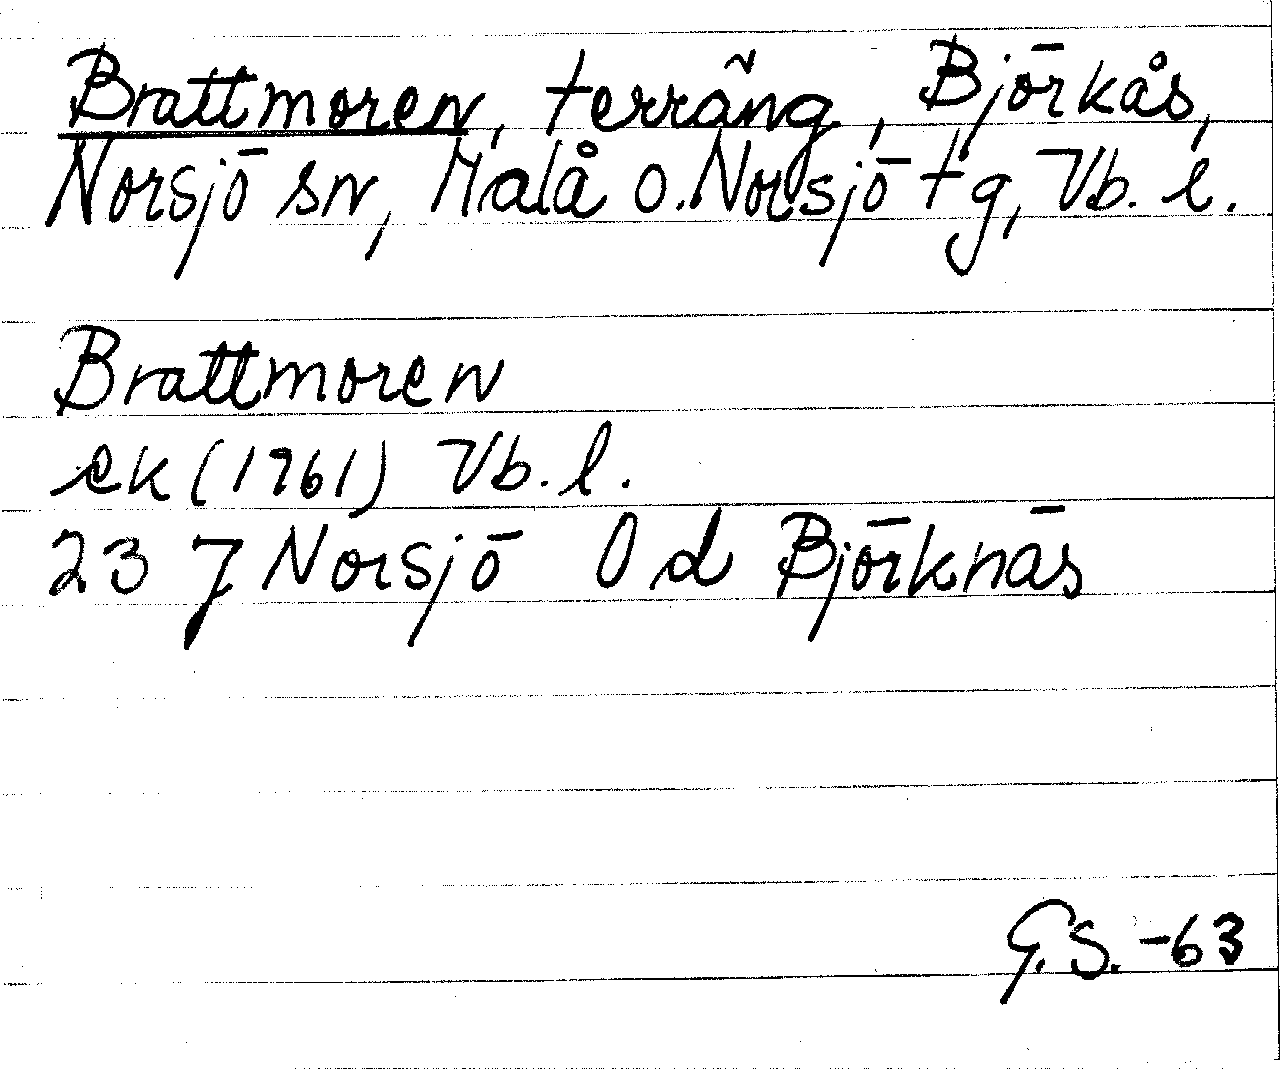 Brattmoren, terräng, Björkås,
Norsjö sn, Malå o. Norsjö tg, Vb. l.
Brattmoren
ek (1961) Vb. l.
23 J Norsjö 0 d Björknäs
G.S. -63